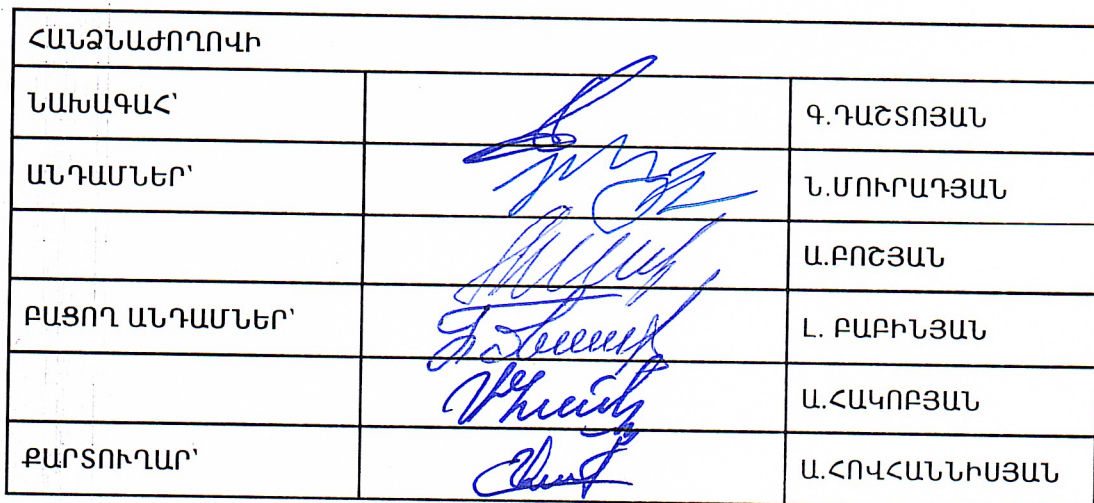 ՀԱՆՁՆԱԺՈՂՈՎԻ
ՆԱԽԱԳԱՀ՝ Գ.ԴԱՇՏՈՅԱՆ
ԱՆԴԱՄՆԵՐ՝ Ն.ՄՈՒՐԱԴՅԱՆ
Ա.ԲՈՇՅԱՆ
ԲԱՑՈՂ ԱՆԴԱՄՆԵՐ՝ Լ. ԲԱԲԻՆՅԱՆ
Ա.ՀԱԿՈԲՅԱՆ
ՔԱՐՏՈՒՂԱՐ՝ Ա.ՀՈՎՀԱՆՆԻՍՅԱՆ